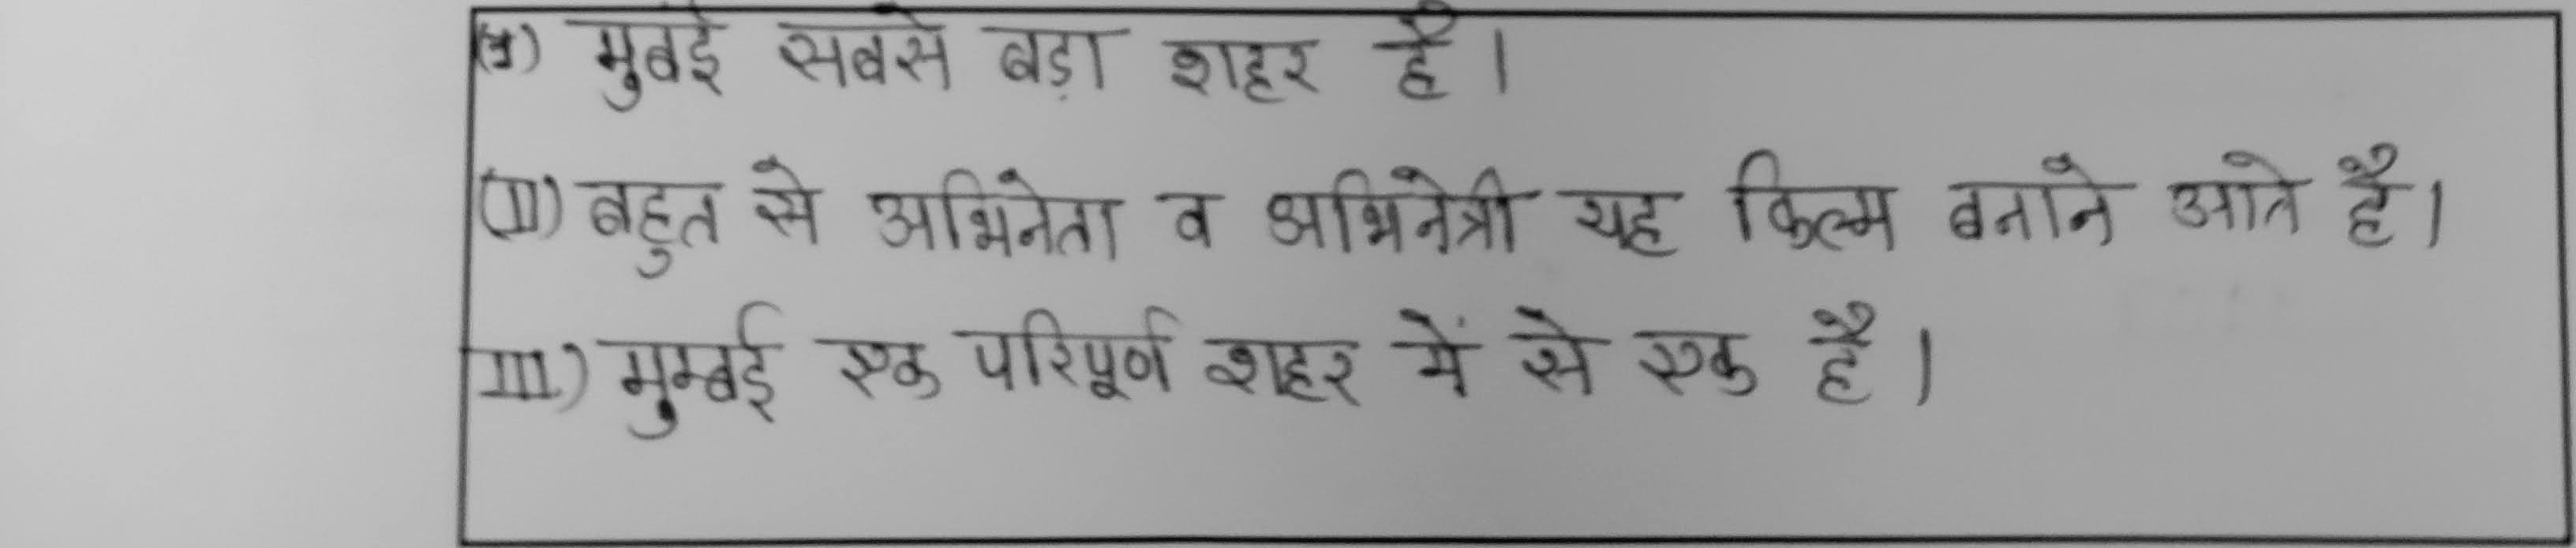 (I) मुबई सबसे बड़ा शहर है।
(II) बहुत से अभिनेता व अभिनेत्री यह फिल्म बनाने आते है।
III) मुम्बई एक परिपूर्ण शहर में से एक है।